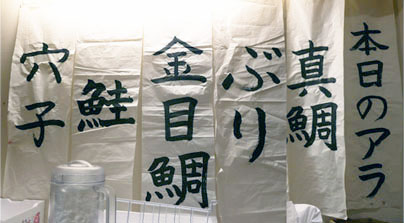 本日のアラ
真鯛
ぶり
金目鯛
鮭
穴子